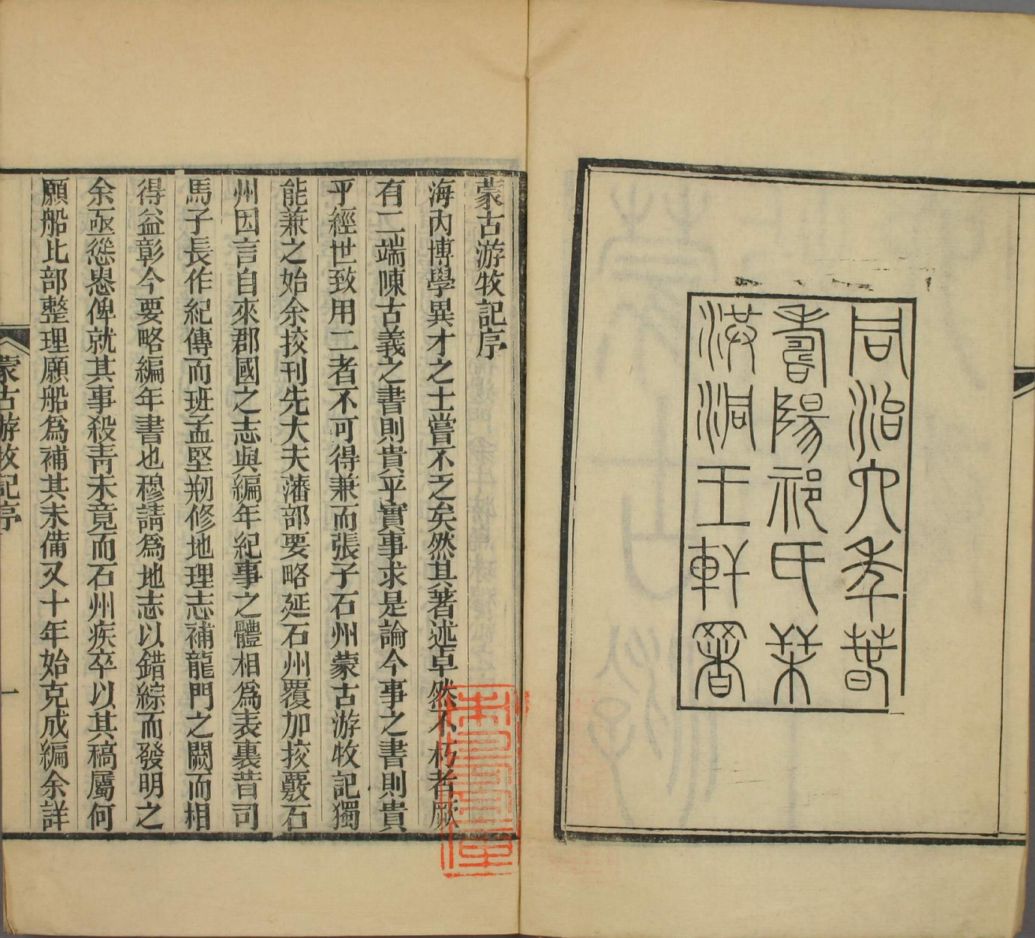 同治六年春
壽陽祁氏栞
洪洞王軒署
蒙古游牧記序
海內博學異才之士嘗不乏矣然其著述卓然不朽者厥
有二端陳古義之書則貴乎實事求是論今事之書則貴
乎經世致用二者不可得兼而張子石州蒙古游牧記獨
能兼之始余挍刊先大夫藩部要略延石州覆加挍覈石
州因言自來郡國之志與編年紀事之體相爲表裏昔司
馬子長作紀傳而班孟堅剏修地理志補龍門之闕而相
得益彰今要略編年書也穆請爲地志以錯綜而發明之
余亟慫恿俾就其事殺青未竟而石州疾卒以其稿屬何
願船比部整理願船爲補其未備又十年始克成編余詳
蒙古游牧記序
一